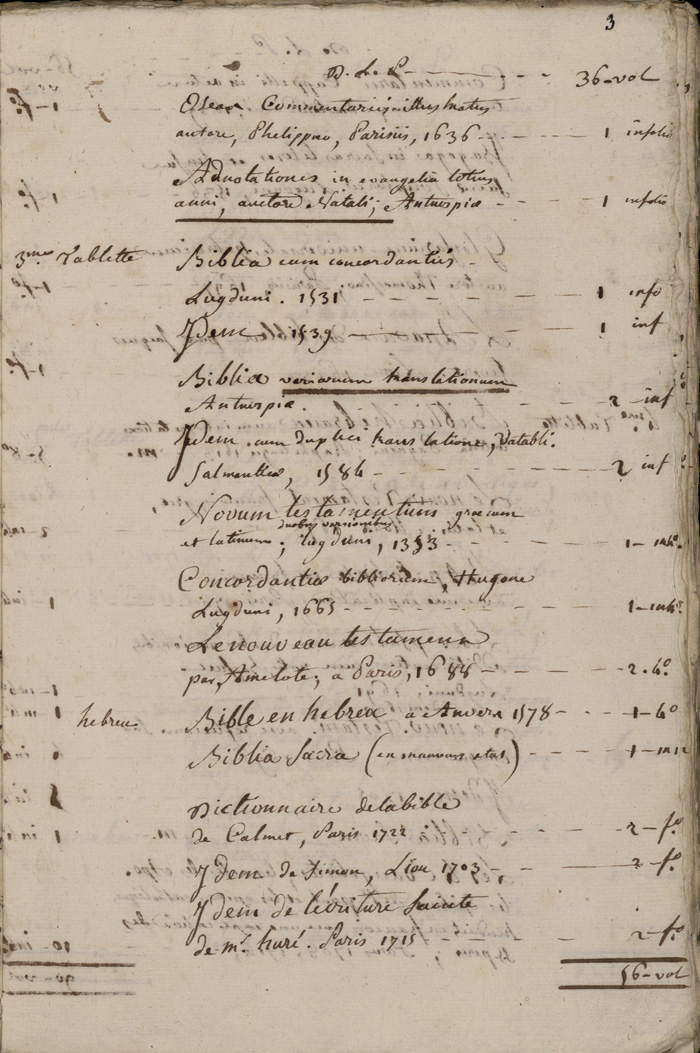 3
D. L. P - - - 36-vol
Oseas Commentariis illustratus
autore, Phelippeo, Parisiis, 1636 - - 1 infolio
Adnotationes in evangelia totius
anni, auctore Natali; Antuerpiæ - - 1 infolio
3me Tablette Biblia cum concordantiis -
Lugduni. 1531 - - - - 1 info
Jdem 1539 - - - 1 inf
Biblia variarum translationum
Antuerpiæ. - - - 2 inf
Jdem cum duplici translatione, Vatabli.
Salmanticæ, 1584 - - - 2 inf
Novum testamentum græcum
duobus versionibus
et latinum; lugduni, - - - 1-in4o.
Concordantiæ bibliorum, Hugone
Lugduni, 1665 - - - 1-in4o.
Le nouveau testament
par Amelote; a Paris, 1688 - - - 2-4o.
hebreu. Bible en hebreu a Anvers 1578 - - 1-4o
Biblia Sacra (en mauvais etat) - - - 1-in12
Dictionnaire de la bible
de Calmet, Paris 1722 - - - 2-fo.
Jdem de Simon, Lion 1703 - - 2-fo.
Jdem de l'écriture Sainte
de mr. huré. Paris 1715 - - - 2-fo.
56-vol